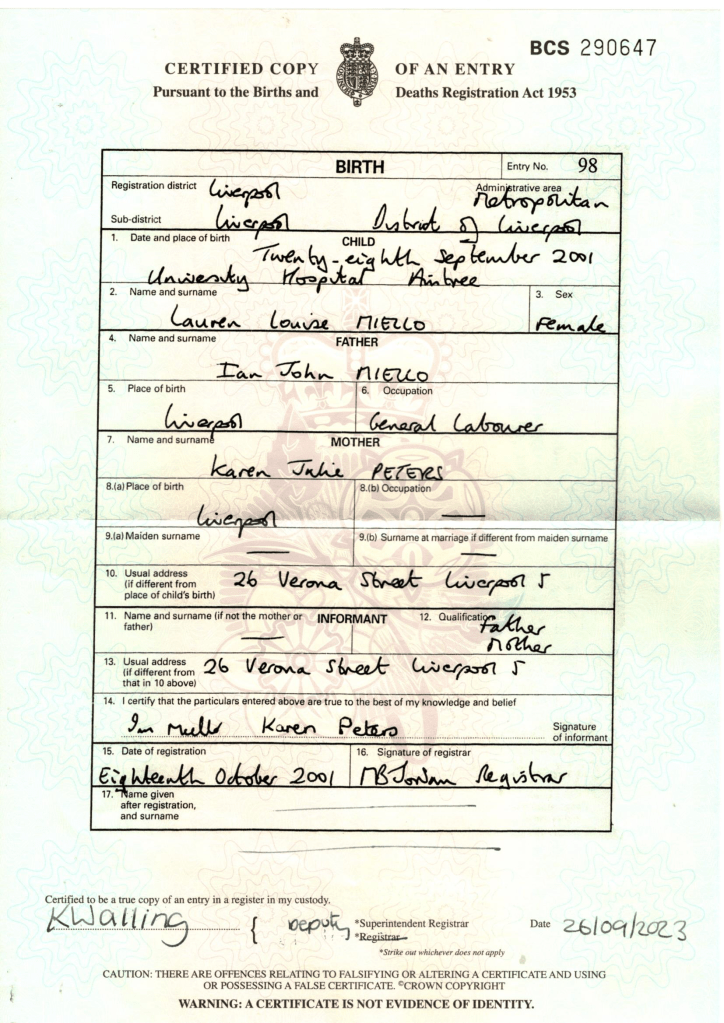 BCS 290647
CERTIFIED COPY OF AN ENTRY
Pursuant to the Births and Deaths Registration Act 1953
BIRTH
Entry No. 98
Registration district Liverpool
Administrative area
Metropolitan
Sub-district Liverpool District of Liverpool
1. Date and place of birth CHILD
Twenty-eighth September 2001
University Hospital Aintree
2. Name and surname
3. Sex
Lauren Louise MIELLO
Female
4. Name and surname FATHER
Ian John MIELLO
5. Place of birth
6. Occupation
Liverpool
General Labourer
7. Name and surname MOTHER
Karen Julie PETERS
8.(a) Place of birth
8.(b) Occupation
Liverpool
9.(a) Maiden surname
9.(b) Surname at marriage if different from maiden surname
10. Usual address 26 Verona Street Liverpool 5
(if different from
place of child's birth)
11. Name and surname (if not the mother or INFORMANT
father)
12. Qualification
Father
Mother
13. Usual address 26 Verona Street Liverpool 5
(if different from
that in 10 above)
14. I certify that the particulars entered above are true to the best of my knowledge and belief
Karen Peters
Signature
of informant
15. Date of registration
16. Signature of registrar
Eighteenth October 2001
Registrar
17. Name given
after registration,
and surname
Certified to be a true copy of an entry in a register in my custody.
KWalling { Deputy *Superintendent Registrar
*Registrar
Date 26/09/2023
*Strike out whichever does not apply
CAUTION: THERE ARE OFFENCES RELATING TO FALSIFYING OR ALTERING A CERTIFICATE AND USING
OR POSSESSING A FALSE CERTIFICATE. ©CROWN COPYRIGHT
WARNING: A CERTIFICATE IS NOT EVIDENCE OF IDENTITY.